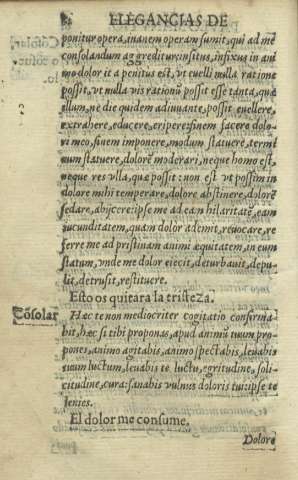 ELEGANCIAS DE
ponitur opera, inanem operam sumit, qui ad me
consolandum aggreditur: insitus, infixus in ani
mo dolor ita penitus est, vt euelli nulla ratione
possit, vt nulla vis rationū possit esse tanta, quæ
illum, ne die quidem adiuuante, possit euellere,
extrahere, educere, eripere: finem facere dolo-
ri meo, finem imponere, modum statuere, termi
num statuere, dolorē moderari, neque homo est,
neque res vlla, quæ possit: non est vt possim in
dolore mihi temperare, dolore abstinere, dolorē
sedare, abijcere: ipse me ad eam hilaritatē, eam
iucunditatem, quam dolor ademit, reuocare, re
ferre me ad pristinam animi æquitatem, in eum
statum, vnde me dolor eiecit, deturbauit, depu-
lit, detrusit, restituere.
Esto os quitara la tristeza.
Cōsolar
Hæc te non mediocriter cogitatio confirma-
bit, hæc si tibi proponas, apud animū tuum pro
pones, animo agitabis, animo spectabis, leuabis
tuum luctum, leuabis te luctu, ægritudine, soli-
citudine, cura: sanabis vulnus doloris tui: ipse te
lenies.
El dolor me consume.
Dolore